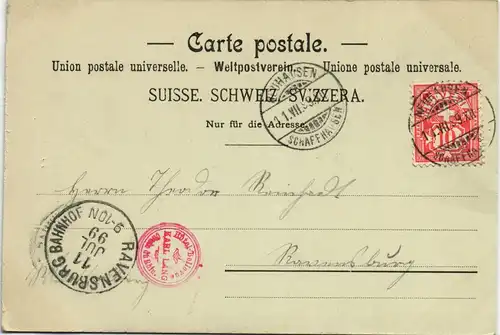 Carte postale.
Union postale universelle. – Weltpostverein. – Unione postale universale.
SUISSE. SCHWEIZ. SVIZZERA.
Nur für die Adresse.
NEUHAUSEN
SCHAFFHAUSEN
NEUHAUSEN
SCHAFFHAUSEN
Herrn Theodor Reinhardt
Ravensburg
RAVENSBURG BAHNHOF
11
JUL
99
9-10N
KARL LANG